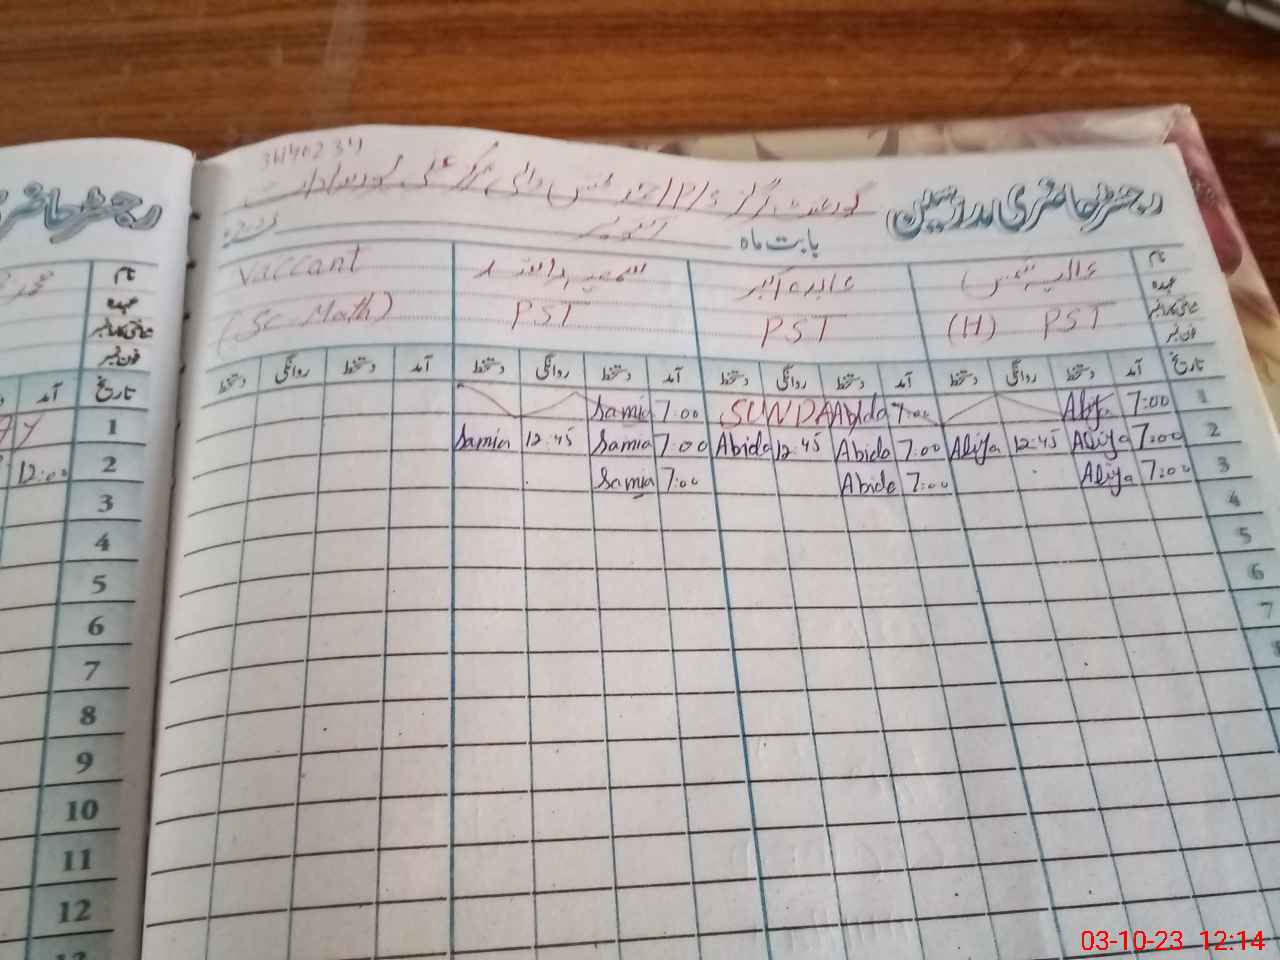 رجسٹر حاضری مدارسین
بابت ماہ
اکتوبر
2023
نام
عالیہ شمس
عابدہ اکبر
Vaccant
عہدہ
(H) PST
PST
PST
(Sc. Math)
فون نمبر
تاریخ آمد دستخط روانگی دستخط آمد دستخط روانگی دستخط آمد دستخط روانگی دستخط آمد دستخط روانگی دستخط
1 7:00 SUNDA Abida 7:00 Samia 7:00
2 7:00 Aliya 12:45 Aliya 7:00 Abida 12:45 Abida 7:00 Samia 12:45 Samia
3 7:00 Aliya 7:00 Abida 7:00 Samia
4
5
6
7
8
رجسٹر حاضری
نام
عہدہ
فون نمبر
تاریخ آمد
1
2 12:00
3
4
5
6
7
8
9
10
11
12
13
03-10-23 12:14